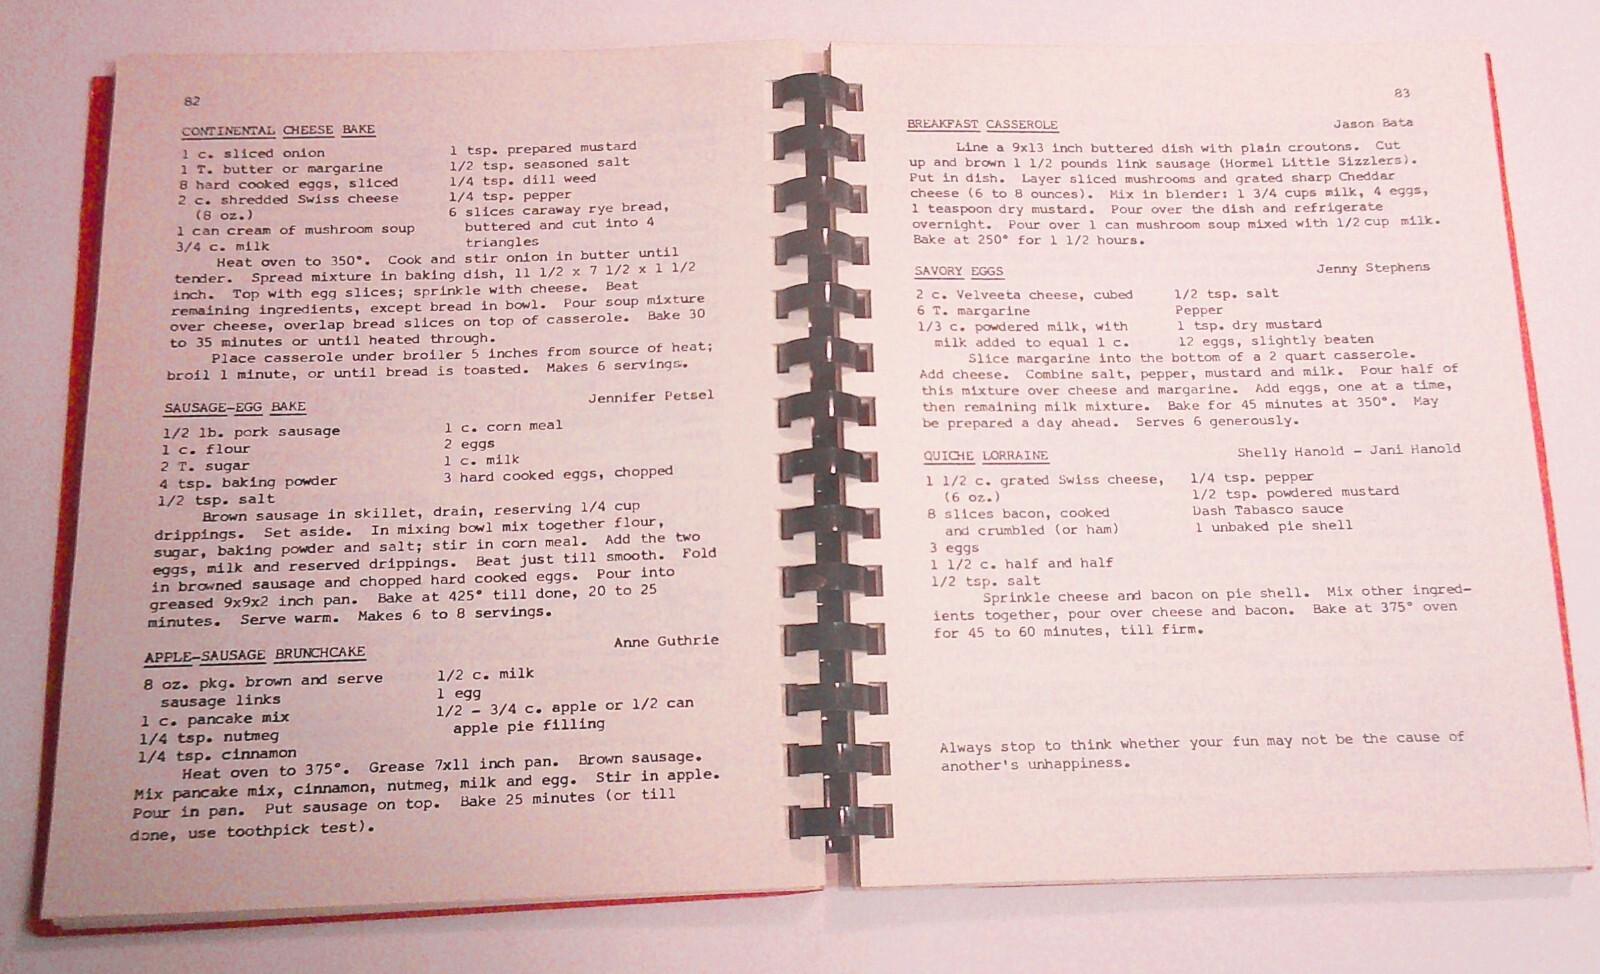 82
CONTINENTAL CHEESE BAKE
1 c. sliced onion
1 T. butter or margarine
8 hard cooked eggs, sliced
2 c. shredded Swiss cheese
(8 oz.)
1 can cream of mushroom soup
3/4 c. milk
1 tsp. prepared mustard
1/2 tsp. seasoned salt
1/4 tsp. dill weed
1/4 tsp. pepper
6 slices caraway rye bread,
buttered and cut into 4
triangles
Heat oven to 350°. Cook and stir onion in butter until
tender. Spread mixture in baking dish, 11 1/2 x 7 1/2 x 1 1/2
inch. Top with egg slices; sprinkle with cheese. Beat
remaining ingredients, except bread in bowl. Pour soup mixture
over cheese, overlap bread slices on top of casserole. Bake 30
to 35 minutes or until heated through.
Place casserole under broiler 5 inches from source of heat;
broil 1 minute, or until bread is toasted. Makes 6 servings.
SAUSAGE-EGG BAKE
Jennifer Petsel
1/2 lb. pork sausage
1 c. flour
2 T. sugar
4 tsp. baking powder
1/2 tsp. salt
1 c. corn meal
2 eggs
1 c. milk
3 hard cooked eggs, chopped
Brown sausage in skillet, drain, reserving 1/4 cup
drippings. Set aside. In mixing bowl mix together flour,
sugar, baking powder and salt; stir in corn meal. Add the two
eggs, milk and reserved drippings. Beat just till smooth. Fold
in browned sausage and chopped hard cooked eggs. Pour into
greased 9x9x2 inch pan. Bake at 425° till done, 20 to 25
minutes. Serve warm. Makes 6 to 8 servings.
APPLE-SAUSAGE BRUNCHCAKE
Anne Guthrie
8 oz. pkg. brown and serve
sausage links
1 c. pancake mix
1/4 tsp. nutmeg
1/4 tsp. cinnamon
1/2 c. milk
1 egg
1/2 - 3/4 c. apple or 1/2 can
apple pie filling
Heat oven to 375°. Grease 7x11 inch pan. Brown sausage.
Mix pancake mix, cinnamon, nutmeg, milk and egg. Stir in apple.
Pour in pan. Put sausage on top. Bake 25 minutes (or till
done, use toothpick test).
83
BREAKFAST CASSEROLE
Jason Bata
Line a 9x13 inch buttered dish with plain croutons. Cut
up and brown 1 1/2 pounds link sausage (Hormel Little Sizzlers).
Put in dish. Layer sliced mushrooms and grated sharp Cheddar
cheese (6 to 8 ounces). Mix in blender: 1 3/4 cups milk, 4 eggs,
1 teaspoon dry mustard. Pour over the dish and refrigerate
overnight. Pour over 1 can mushroom soup mixed with 1/2 cup milk.
Bake at 250° for 1 1/2 hours.
SAVORY EGGS
Jenny Stephens
2 c. Velveeta cheese, cubed
6 T. margarine
1/3 c. powdered milk, with
milk added to equal 1 c.
1/2 tsp. salt
Pepper
1 tsp. dry mustard
12 eggs, slightly beaten
Slice margarine into the bottom of a 2 quart casserole.
Add cheese. Combine salt, pepper, mustard and milk. Pour half of
this mixture over cheese and margarine. Add eggs, one at a time,
then remaining milk mixture. Bake for 45 minutes at 350°. May
be prepared a day ahead. Serves 6 generously.
QUICHE LORRAINE
Shelly Hanold - Jani Hanold
1 1/2 c. grated Swiss cheese,
(6 oz.)
8 slices bacon, cooked
and crumbled (or ham)
3 eggs
1 1/2 c. half and half
1/2 tsp. salt
1/4 tsp. pepper
1/2 tsp. powdered mustard
Dash Tabasco sauce
1 unbaked pie shell
Sprinkle cheese and bacon on pie shell. Mix other ingred-
ients together, pour over cheese and bacon. Bake at 375° oven
for 45 to 60 minutes, till firm.
Always stop to think whether your fun may not be the cause of
another's unhappiness.